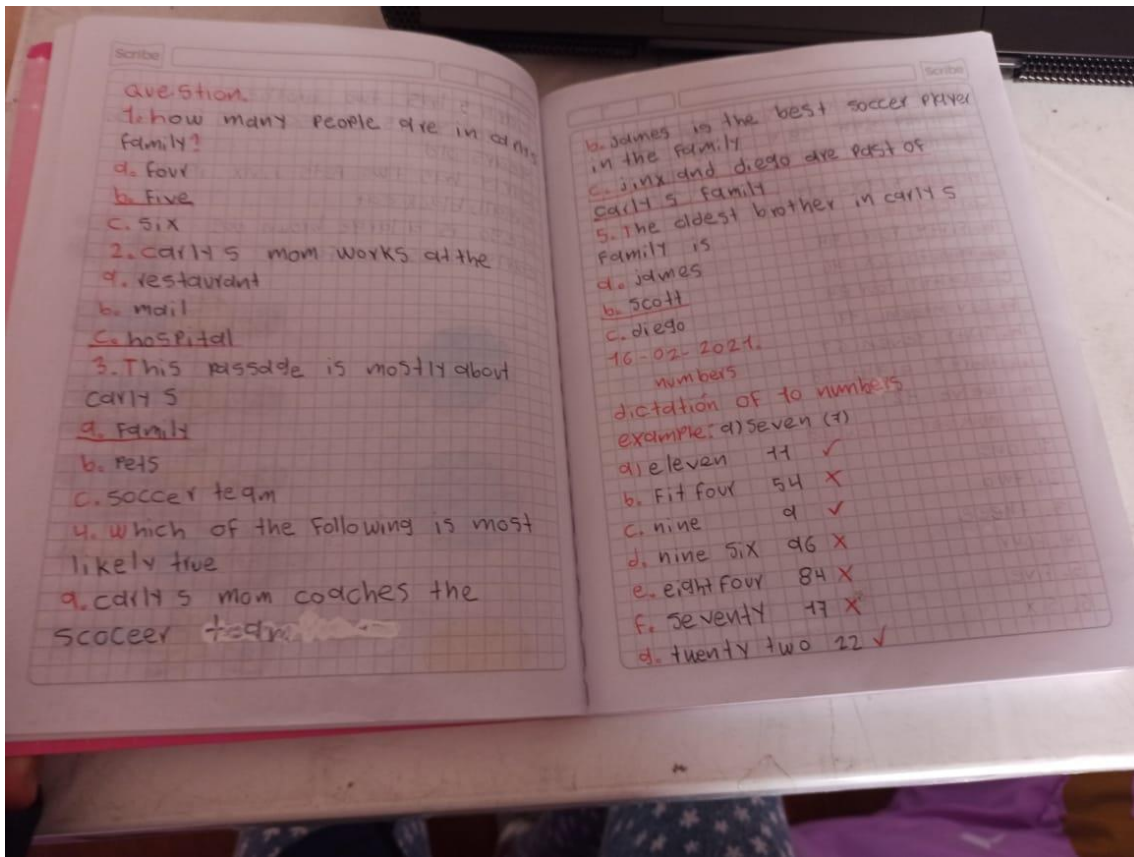 Scribe
Question.
1. how many people are in carlys
family?
a. four
b. Five
c. six
2. carly s mom works at the
a. restaurant
b. mail
c. hospital
3. This passage is mostly about
carly s
a. Family
b. Pets
c. soccer team
4. which of the Following is most
likely true
a. carly s mom coaches the
scoceer team
Scribe
b. James is the best soccer player
in the family
c. jinx and diego are past of
carly s family
5. The oldest brother in carly s
Family is
a. james
b. scott
c. diego
16-02-2021.
numbers
dictation OF 10 numbers
example: a) seven (7)
a) eleven 11 ✓
b. Fit four 54 X
c. nine 9 ✓
d. nine six 96 X
e. eight four 84 X
f. seventy 17 X
g. tuenty two 22 ✓